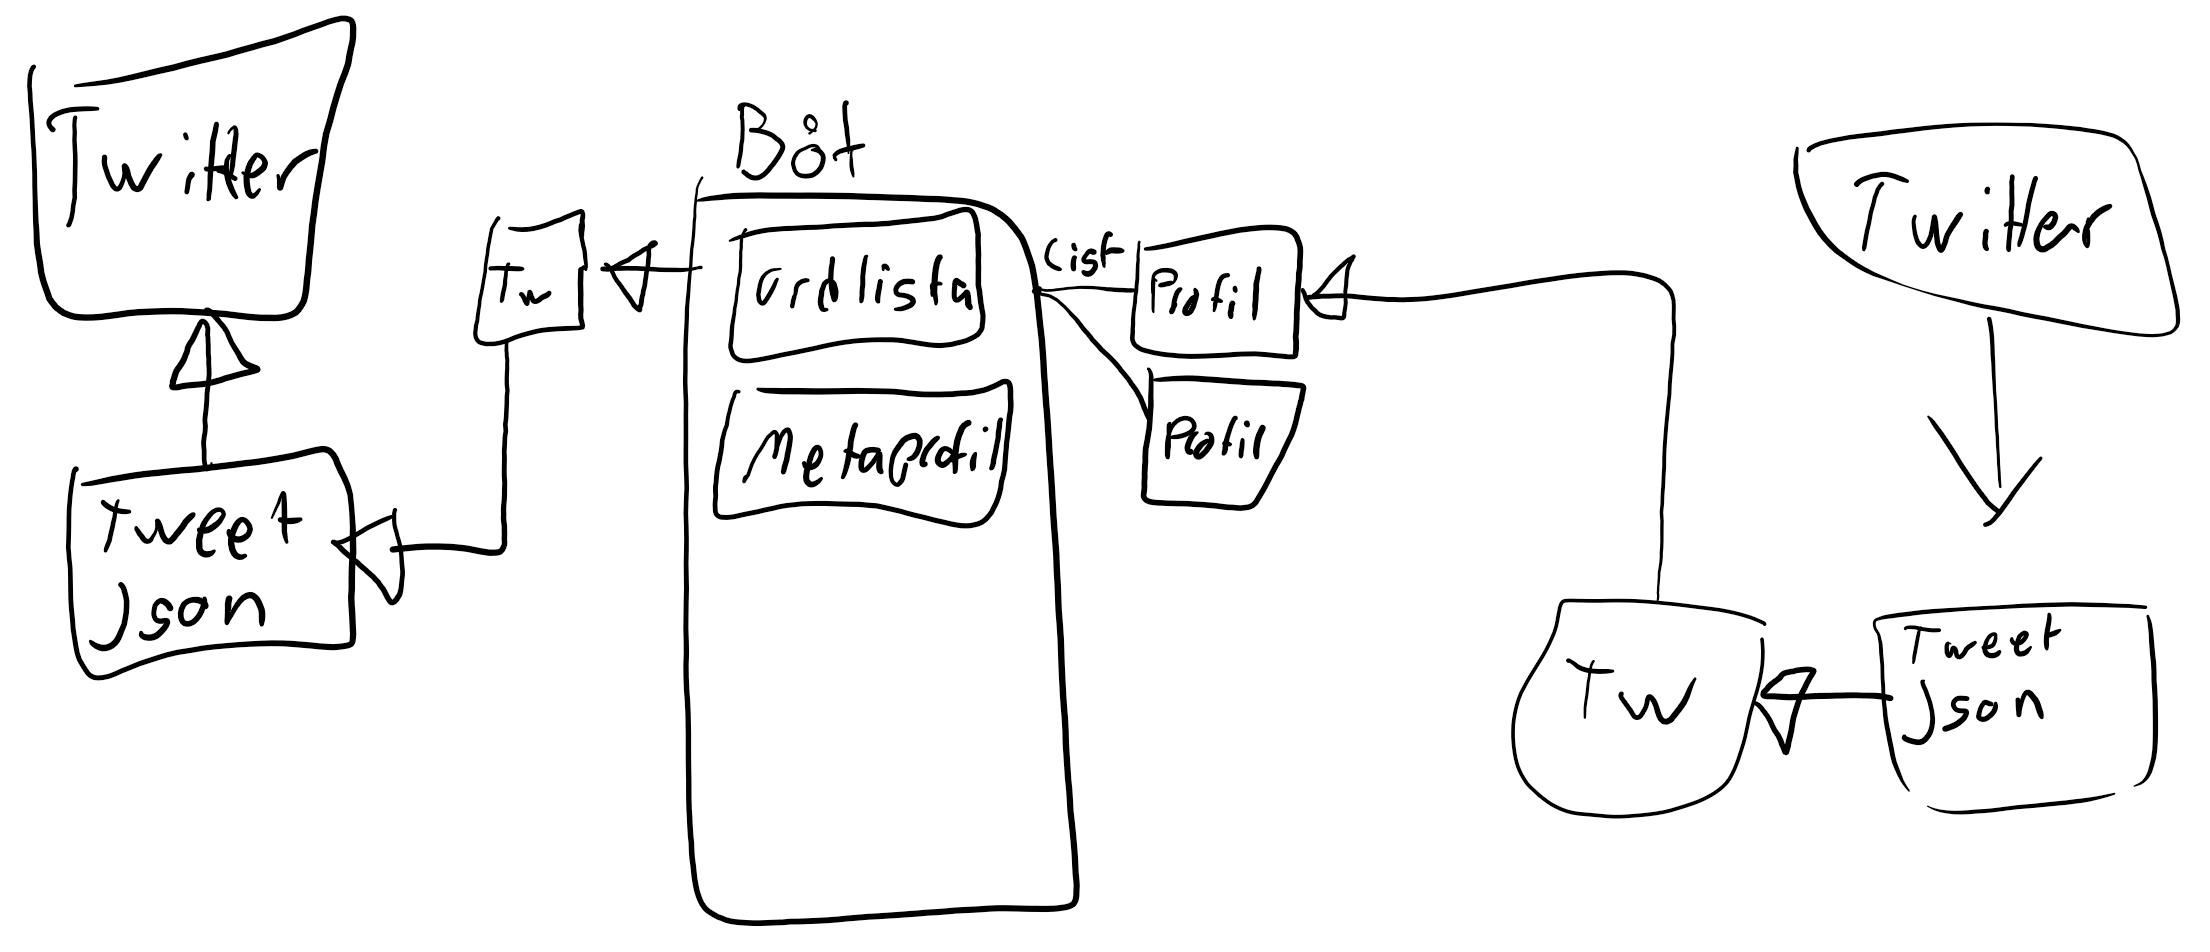 Twitter
Tweet
Json
Tw
Böt
Ordlista
Metaprofil
List
Profil
Profil
Twitter
Tw
Tweet
Json